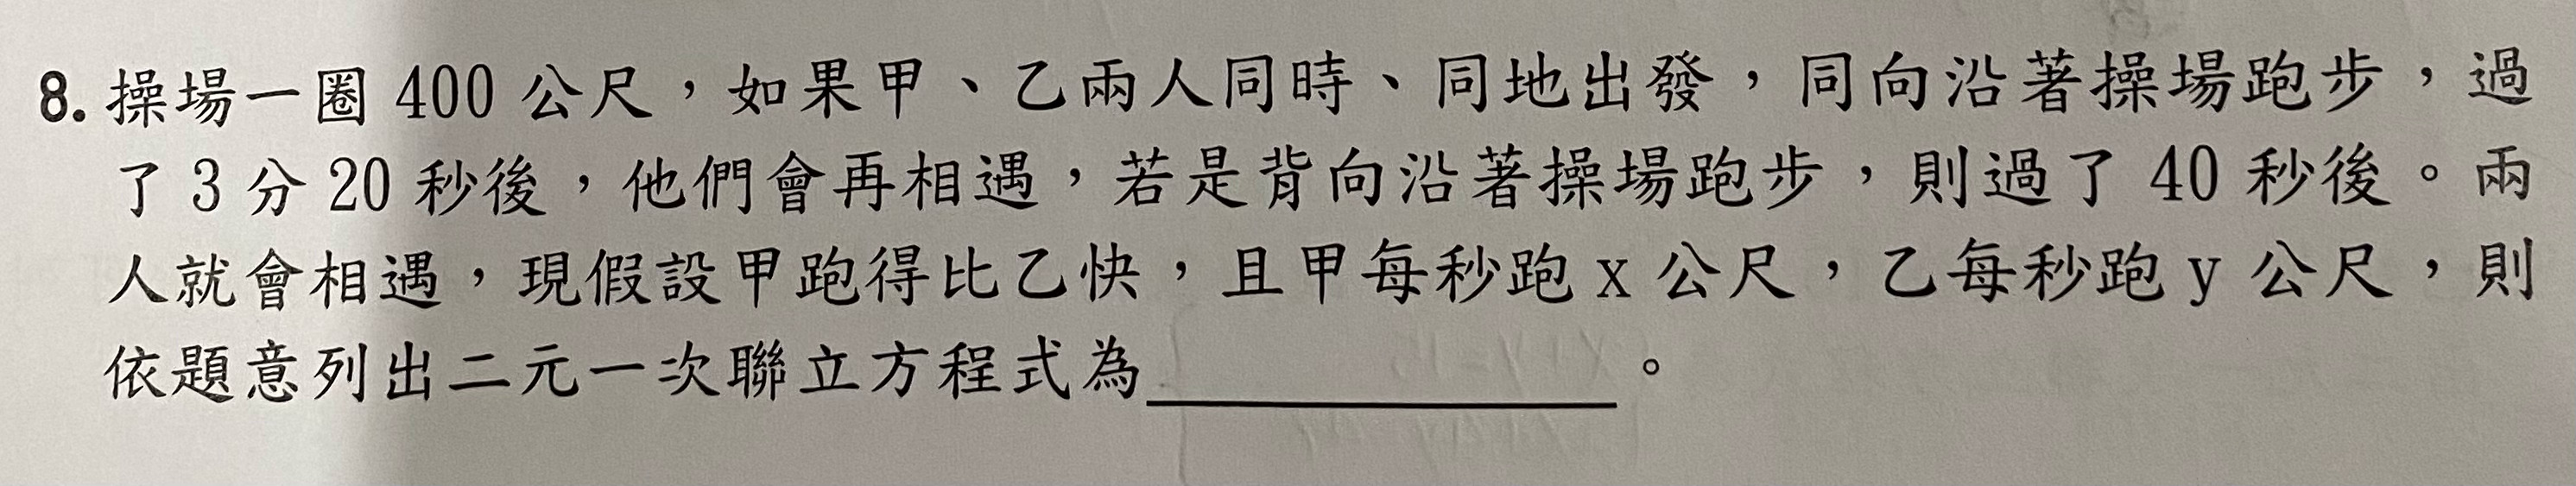 8. 操場一圈 400 公尺，如果甲、乙兩人同時、同地出發，同向沿著操場跑步，過
了 3 分 20 秒後，他們會再相遇，若是背向沿著操場跑步，則過了 40 秒後。兩
人就會相遇，現假設甲跑得比乙快，且甲每秒跑 x 公尺，乙每秒跑 y 公尺，則
依題意列出二元一次聯立方程式為＿＿＿＿＿＿。